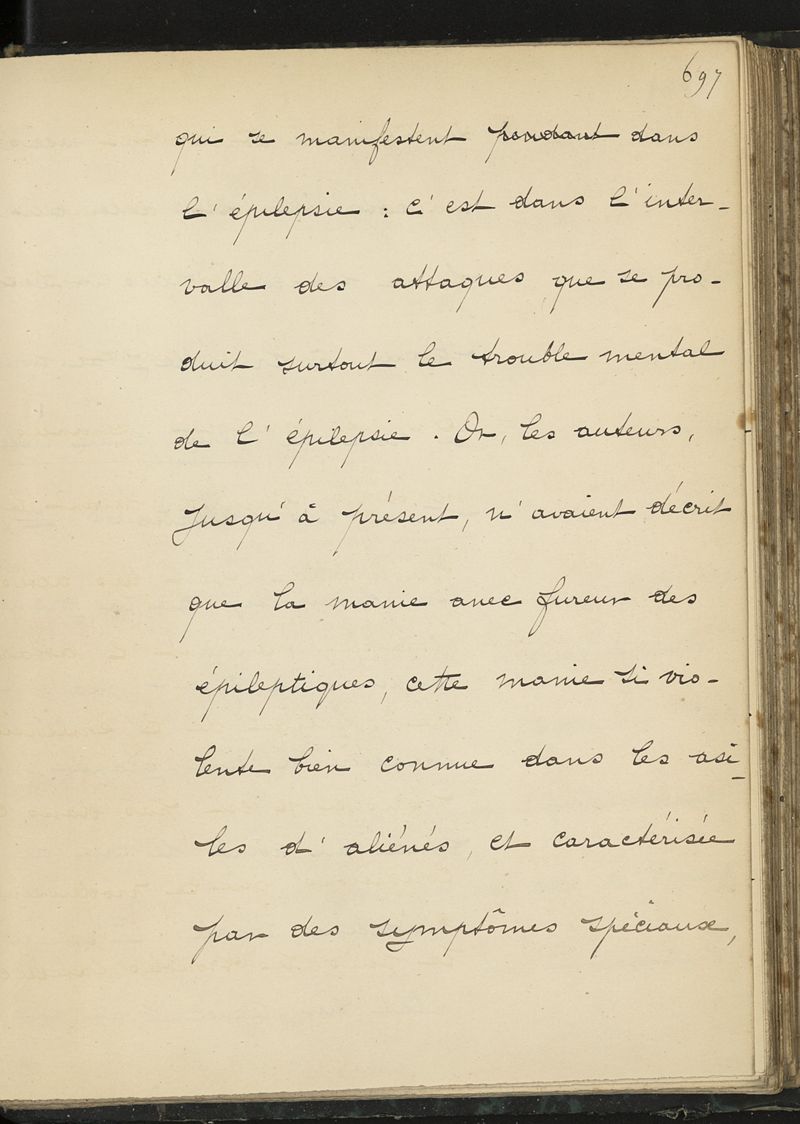 697
qui se manifestent pendant dans
l'épilepsie : c'est dans l'inter-
valle des attaques que se pro-
duit surtout le trouble mental
de l'épilepsie. Or, les auteurs,
jusqu'à présent, n'avaient décrit
que la manie avec fureur des
épileptiques, cette manie si vio-
lente bien connue dans les asi-
les d'aliénés, et caractérisée
par des symptômes spéciaux,